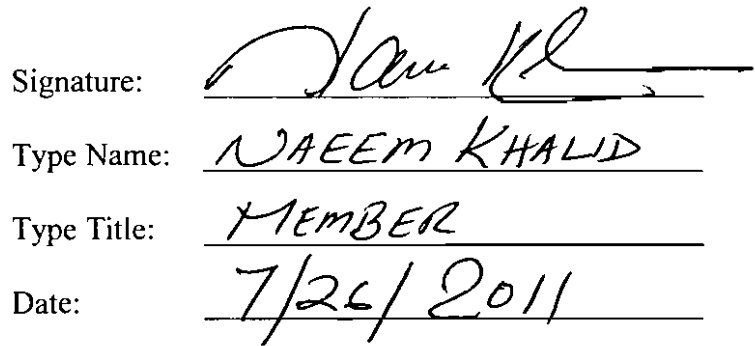 Signature:
Type Name: NAEEM KHALID
Type Title: MEMBER
Date: 7/26/2011